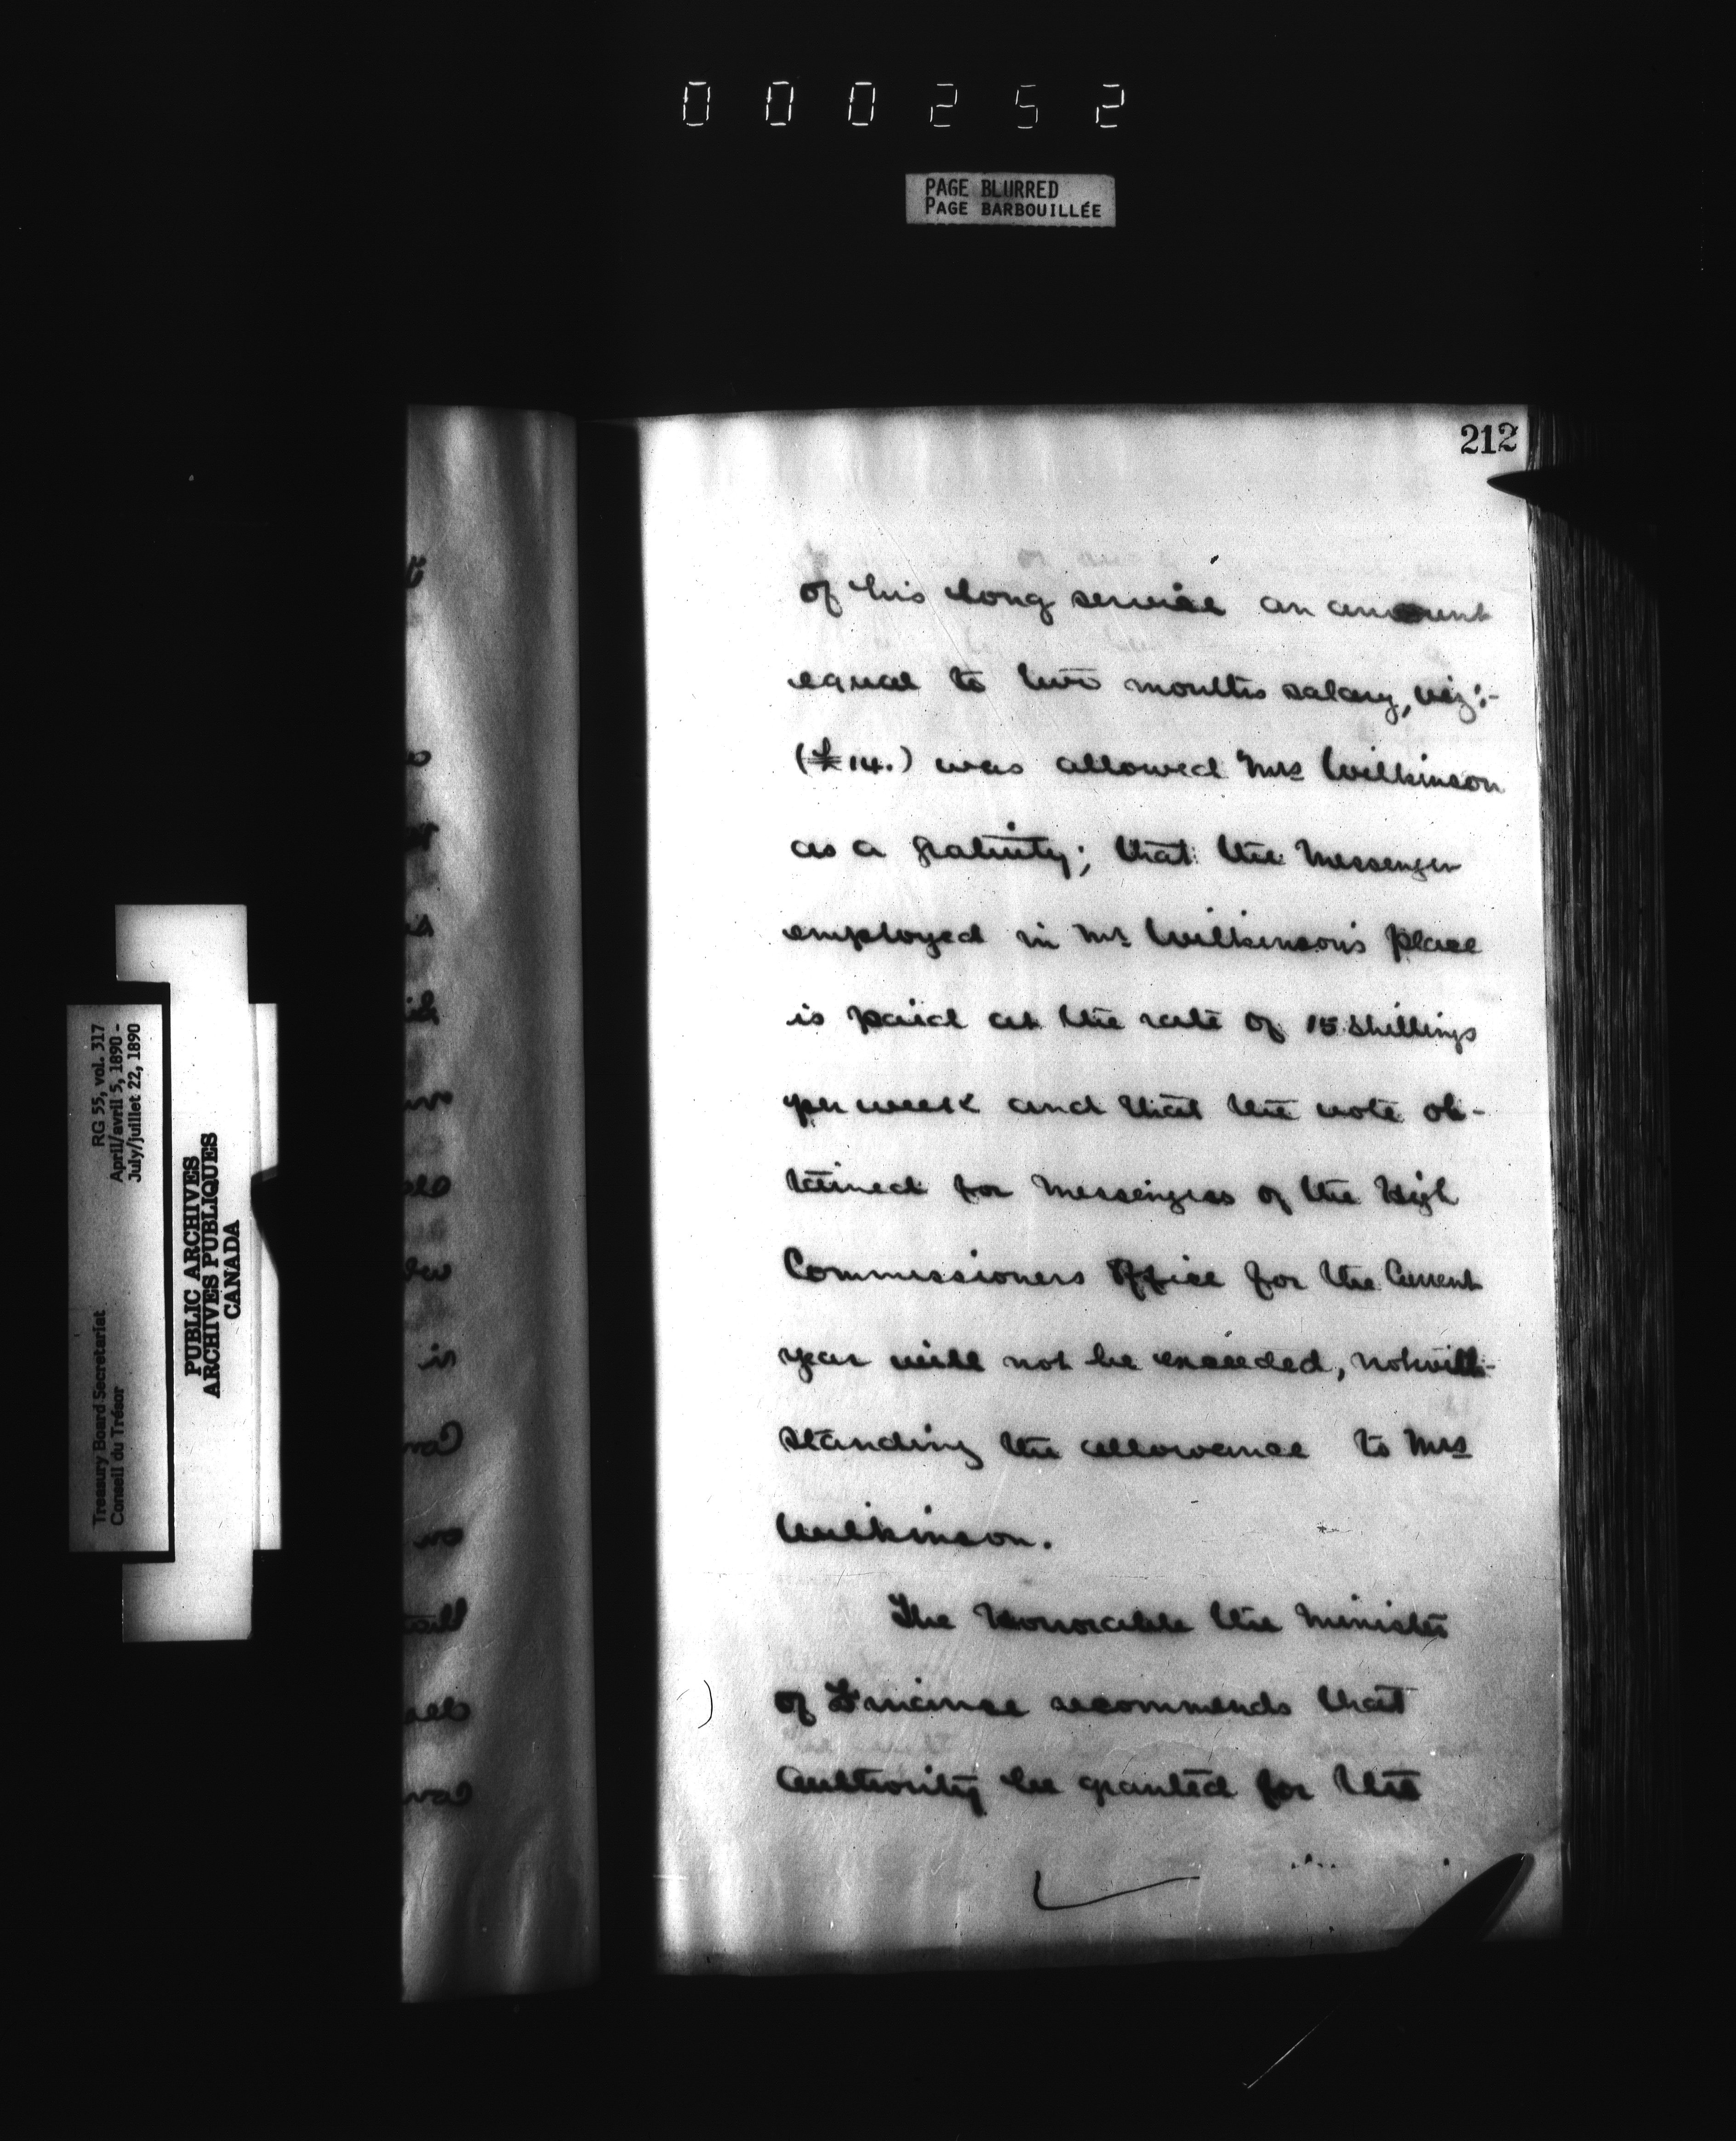 000252
PAGE BLURRED
PAGE BARBOUILLÉE
212
of his long service an amount
equal to two months salary, viz:-
(£14.) was allowed Mrs Wilkinson
as a gratuity; that the Messenger
employed in Mr Wilkinson's place
is paid at the rate of 15 shillings
per week and that the vote ob-
tained for Messengers of the High
Commissioners Office for the Current
year will not be exceeded, notwith-
standing the allowance to Mrs
Wilkinson.
The Honorable the Minister
of Finance recommends that
Authority be granted for the
RG 55, vol. 317
April/avril 5, 1890 -
July/juillet 22, 1890
Treasury Board Secretariat
Conseil du Trésor
PUBLIC ARCHIVES
ARCHIVES PUBLIQUES
CANADA